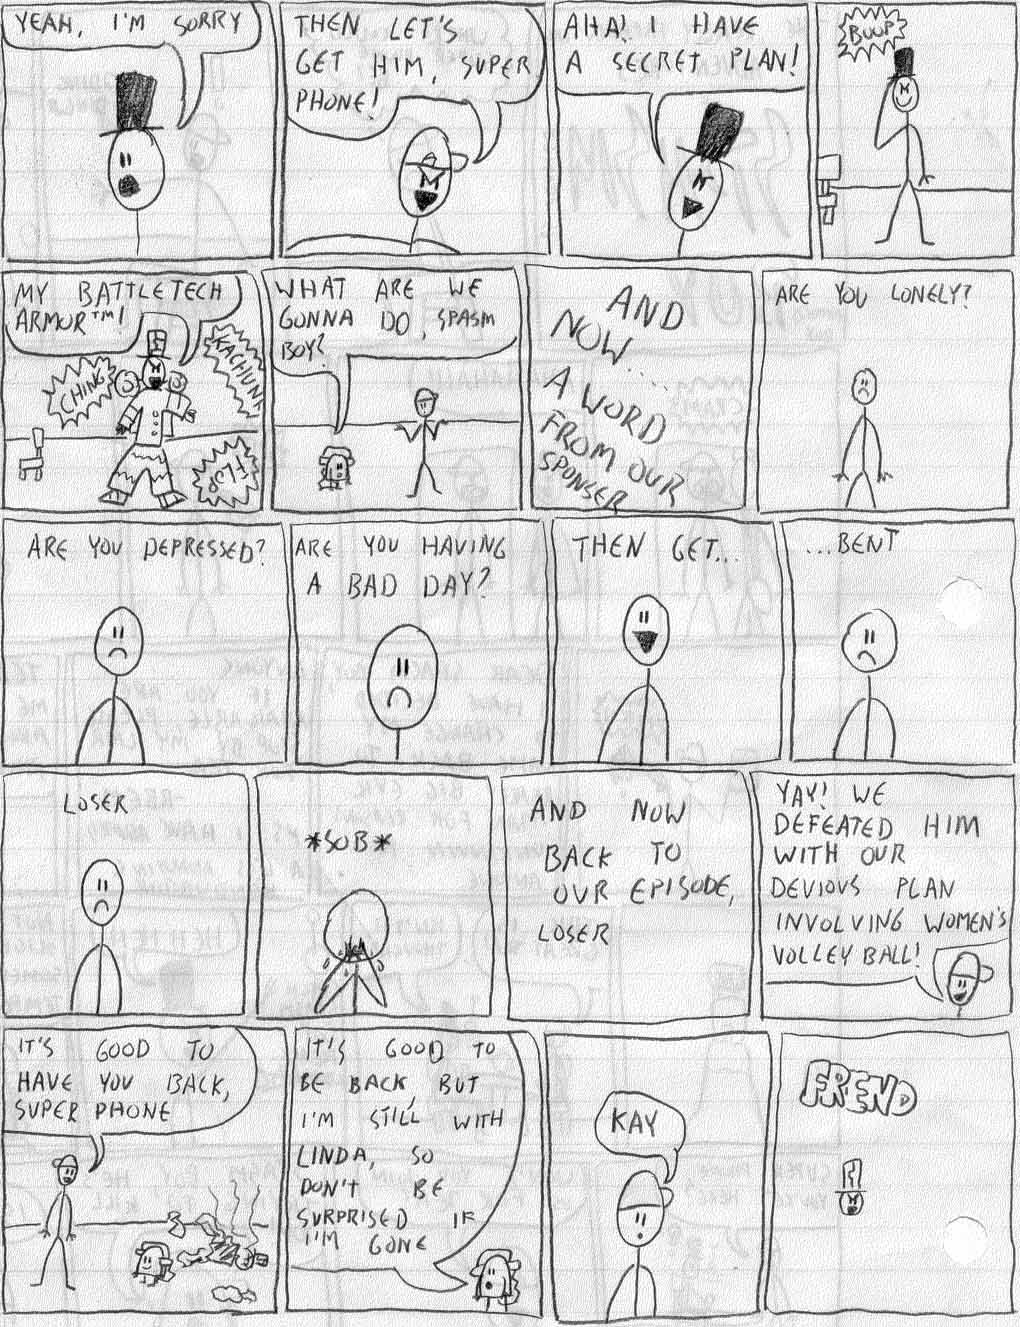 YEAH, I'M SORRY
THEN LET'S
GET HIM, SUPER
PHONE!
AHA! I HAVE
A SECRET PLAN!
BOOP
MY BATTLETECH
ARMOR™!
CHING
KACHUNK
FLOP
WHAT ARE WE
GONNA DO, SPASM
BOY?
AND
NOW....
A WORD
FROM OUR
SPONSER
ARE YOU LONELY?
ARE YOU DEPRESSED?
ARE YOU HAVING
A BAD DAY?
THEN GET...
...BENT
LOSER
*SOB*
AND NOW
BACK TO
OUR EPISODE,
LOSER
YAY! WE
DEFEATED HIM
WITH OUR
DEVIOUS PLAN
INVOLVING WOMEN'S
VOLLEY BALL!
IT'S GOOD TO
HAVE YOU BACK,
SUPER PHONE
IT'S GOOD TO
BE BACK, BUT
I'M STILL WITH
LINDA, SO
DON'T BE
SURPRISED IF
I'M GONE
KAY
FREND